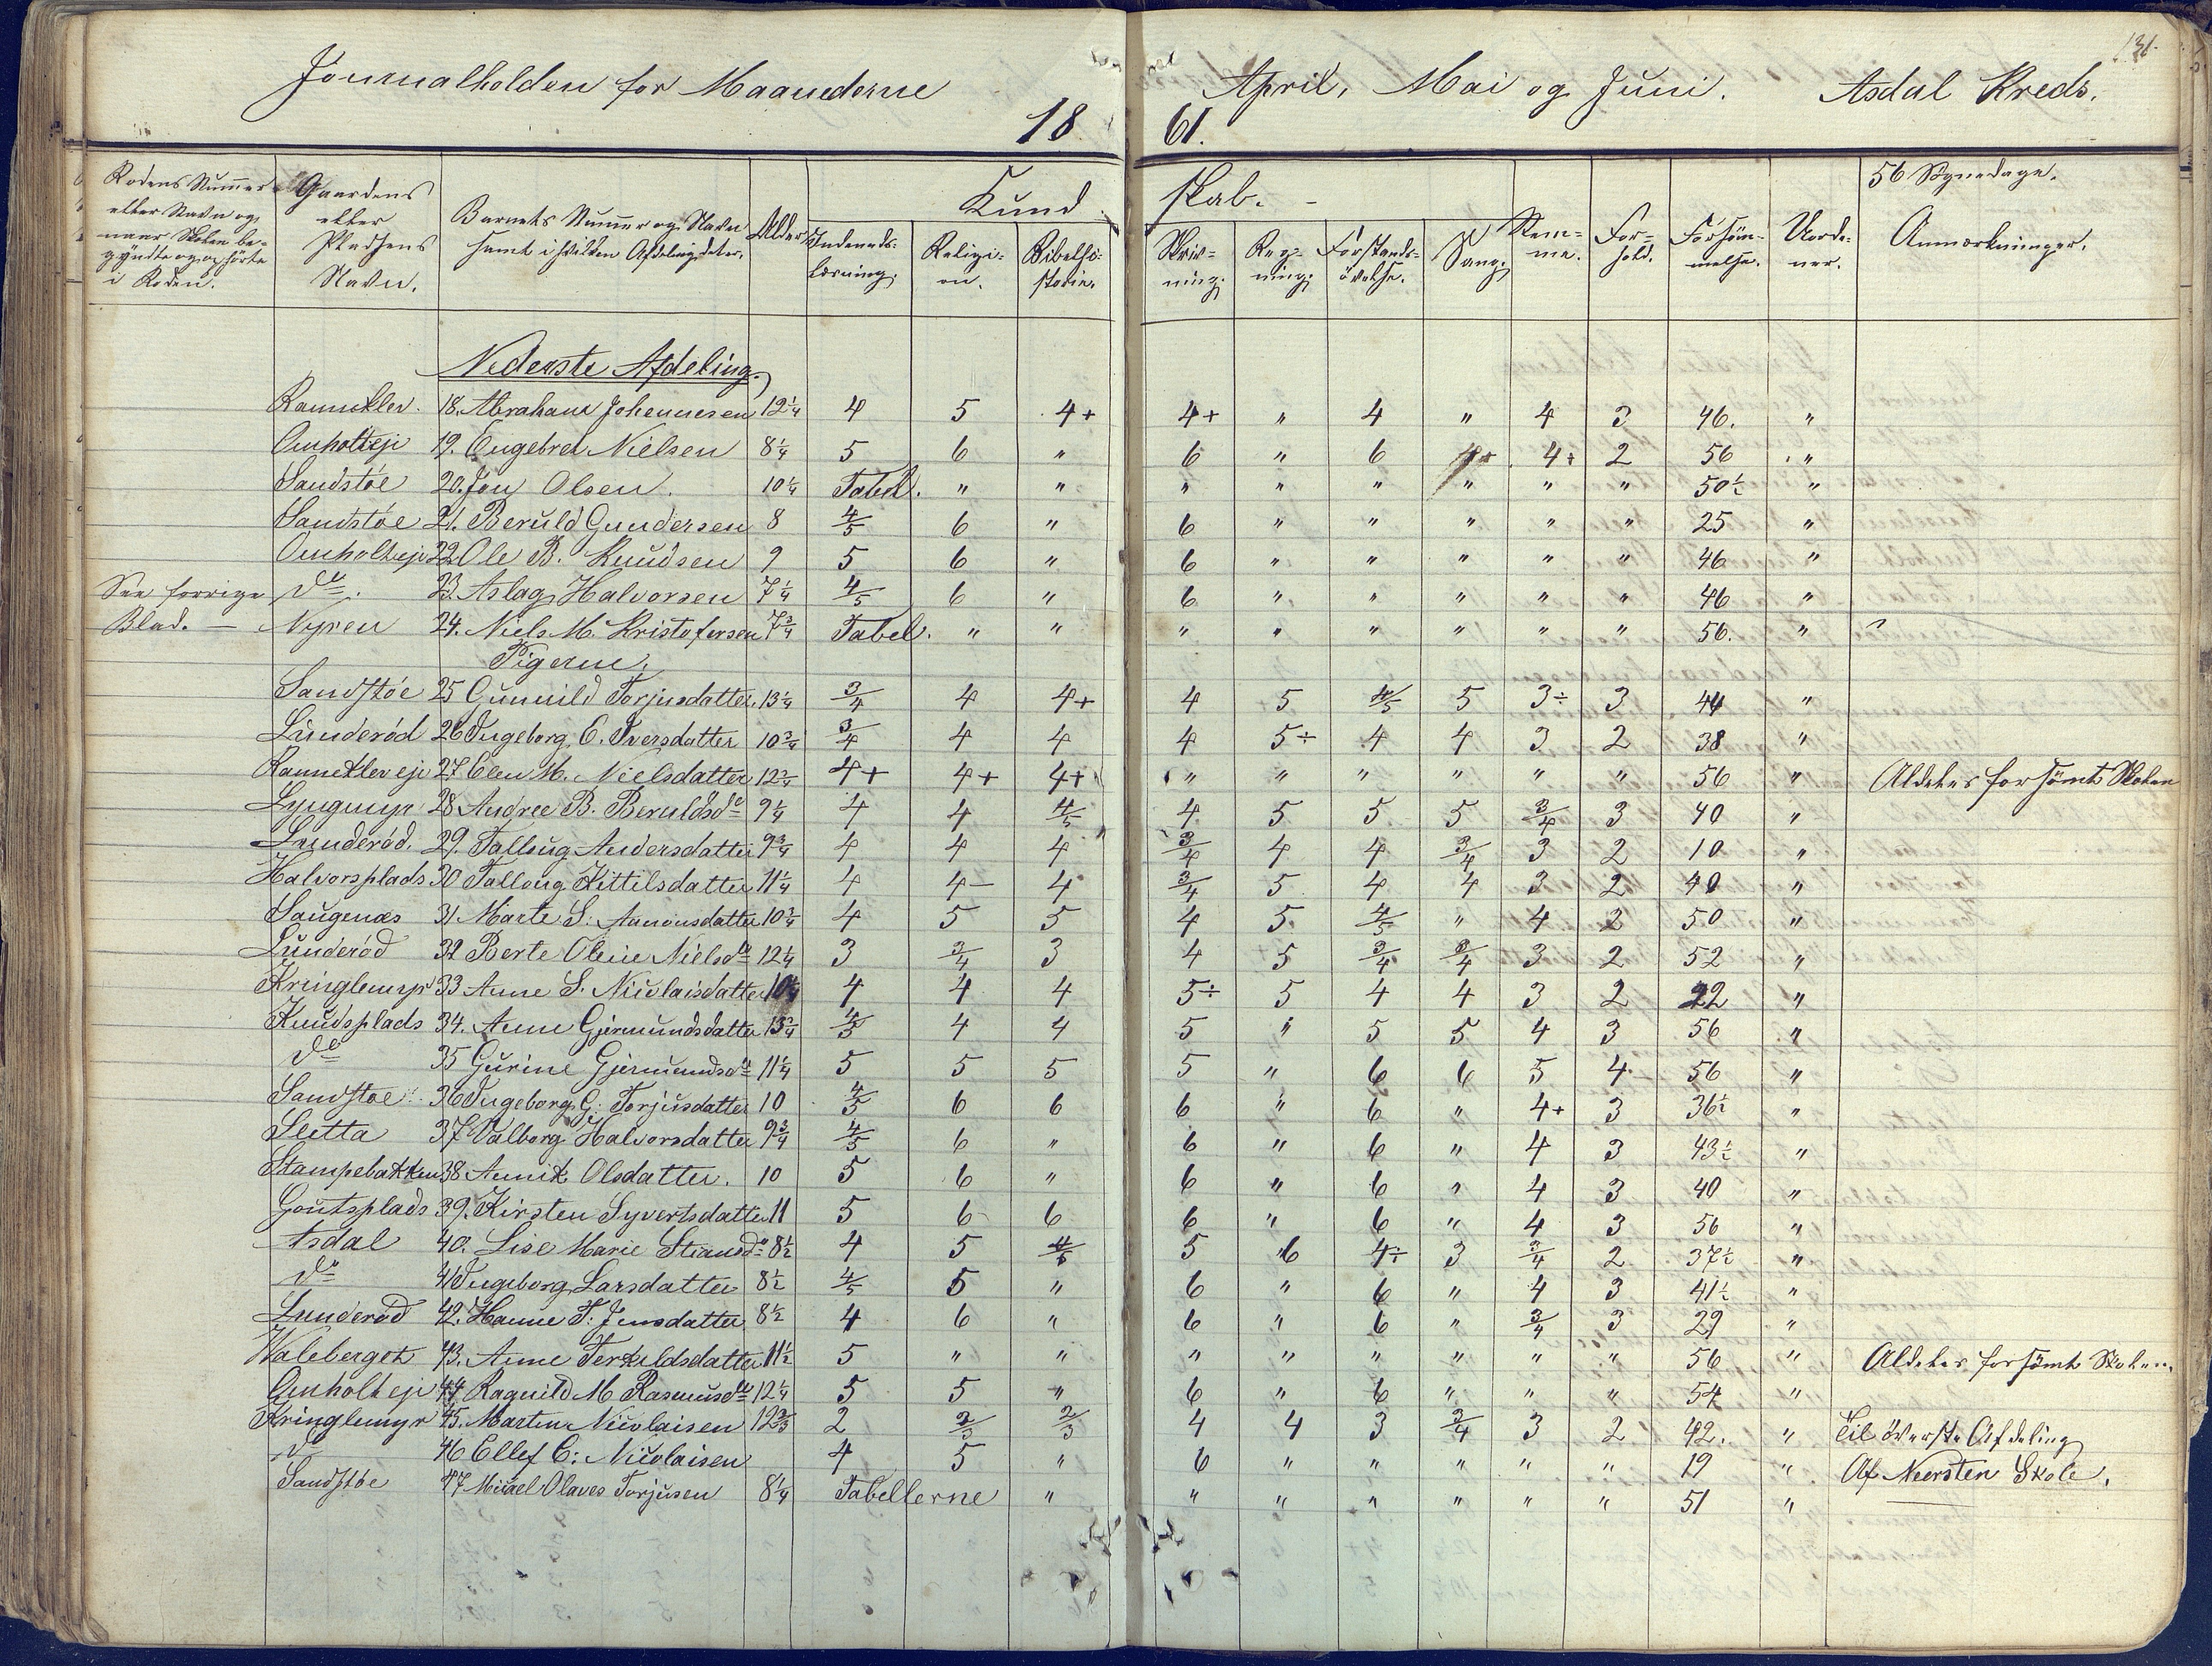 131.
Journalholden for Maanederne April, Mai og Juni. Asdal Kreds.
1861.
Rodens Nummer eller Navn og naar Skolen begyndte og ophörte i Roden. | Gaardens eller Pladsens Navn. | Barnets Nummer og Navn samt i hvilken Afdeling det er. | Alder | Kundskab. Indenadslæsning. | Religion. | Bibelhistorie. | Skrivning. | Regning. | Forstandsövelse. | Sang. | Nemme. | Forhold. | Forsömmelse. | Uordener. | 56 Skoledage. Anmærkninger.
Nederste Afdeling.
Rannekler. 18. Abraham Johennesen 12 1/4 4 5 4+ 4+ " 4 " 4 3 46. "
Omholteje 19. Engebret Nielsen 8 1/4 5 6 " 6 " 6 4+ 4+ 2 56 "
Sandstöe 20. Jon Olsen. 10 1/4 Tabel. " " " " " " " " 50 1/2 "
Sandstöe 21. Beruld Gundersen 8 4/5 6 " 6 " " " " " 25 "
Omholteje 22 Ole B. Knudsen 9 5 6 " 6 " " " " " 46 "
See forrige do. 23. Aslag Halvorsen 7 1/4 4/5 6 " 6 " " " " " 46 "
Blad. — Nyren 24. Niels M. Kristofersen 7 3/4 Tabel. " " " " " " " " 56. "
Pigerne.
Sandstöe 25 Gunnild Torjusdatter. 13 1/4 3/4 4 4+ 4 5 4/5 5 3÷ 3 44 "
Lunderöd 26 Ingeborg O. Iversdatter 10 3/4 3/4 4 4 4 5÷ 4 4 3 2 38 "
Rannekler eje 27 Elen M. Nielsdatter 12 3/4 4+ 4+ 4+ " " " " " " 56 " Aldeles forsömt Skolen
Lyngmyr 28 Andree B. Beruldsdr 9 1/4 4 4 4/5 4 5 5 5 3/4 3 40 "
Lunderöd. 29. Tallaug Andersdatter 9 3/4 4 4 4 3/4 4 4 3/4 3 2 10 "
Halvorsplads 30 Tallaug Kittilsdatter 11 1/4 4 4- 4 3/4 5 4 4 3 2 40 "
Saugenæs 31 Marte S. Aanonsdatter 10 3/4 4 5 5 4 5 4/5 " 4 2 50 "
Lunderöd 32 Berte Oleie Nielsdr 12 1/4 3 3/4 3 4 5 3/4 3/4 3 2 52 "
Kringlemyr 33 Anne S. Nicolaisdatter 10 1/4 4 4 4 5÷ 5 4 4 3 2 22 "
Knudsplads 34. Anne Gjermundsdatter 13 3/4 4/5 4 4 5 " 5 5 4 3 56 "
do 35 Gurine Gjermundsdr 11 1/4 5 5 5 5 " 6 6 5 4 56 "
Sandstöe 36 Ingeborg G. Torjusdatter 10 4/5 6 6 6 " 6 " 4+ 3 36 1/2 "
Sletta 37 Valborg Halvorsdatter 9 3/4 4/5 6 " 6 " 6 " 4 3 43 1/2 "
Stampebakken 38 Annik Olsdatter. 10 5 6 " 6 " 6 " 4 3 40 "
Goutsplads 39. Kirsten Syvertsdatter 11 5 6 6 6 " 6 " 4 3 56 "
Asdal 40. Lise Marie 8 1/2 4 5 4/5 5 6 4÷ 3 3/4 2 37 1/2 "
do 41 Ingeborg Larsdatter 8 1/2 4/5 5 " 6 " 6 " 4 3 41 1/2 "
Lunderöd 42. Hanne T. Jensdatter 8 1/2 4 6 " 6 " 6 " 3/4 3 29 "
Waleberget 43. Anne Terkildsdatter 11 1/2 5 " " " " " " " " 56 " Aldeles forsömt Skolen.
Omholt eje 44 Ragnild M. Rasmusdr 12 1/4 5 5 " 6 " 6 " " " 54 "
Kringlemyr 45. Martin Nicolaisen 12 2/3 2 2/3 2/3 4 4 3 3/4 3 2 42. " Til överste Afdeling
do 46 Ellef C: Nicolaisen 4 5 " 6 " " " " " 19 " Af Neersten Skole.
Sandstöe 47 Micael Olaves Torjusen 8 1/4 Tabellerne " " " " " " " 51 "